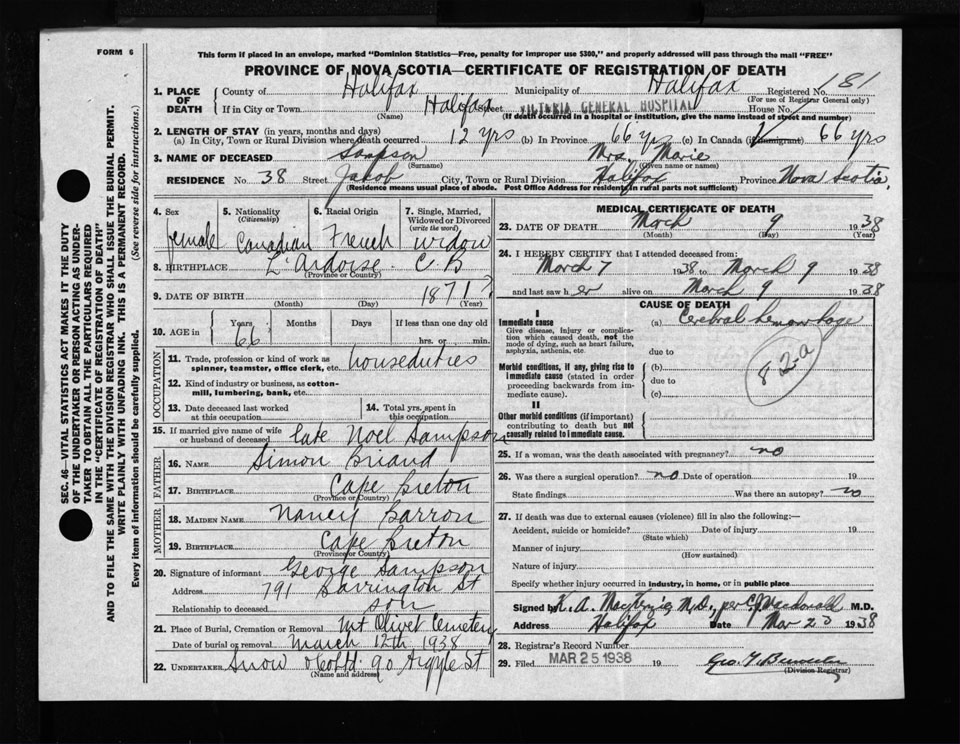 FORM 6
This form if placed in an envelope, marked "Dominion Statistics—Free, penalty for improper use $300," and properly addressed will pass through the mail "FREE"
PROVINCE OF NOVA SCOTIA—CERTIFICATE OF REGISTRATION OF DEATH
1. PLACE OF DEATH County of Halifax Municipality of Halifax Registered No. 181
(For use of Registrar General only)
If in City or Town Halifax Street VICTORIA GENERAL HOSPITAL House No.
(Name) (If death occurred in a hospital or institution, give the name instead of street and number)
2. LENGTH OF STAY (in years, months and days)
(a) In City, Town or Rural Division where death occurred 12 yrs (b) In Province 66 yrs (c) In Canada (if immigrant) 66 yrs
3. NAME OF DECEASED Sampson Mrs. Marie
(Surname) (Given name or names)
RESIDENCE No. 38 Street Jakob City, Town or Rural Division Halifax Province Nova Scotia,
(Residence means usual place of abode. Post Office Address for residents in rural parts not sufficient)
4. Sex 5. Nationality (Citizenship) 6. Racial Origin 7. Single, Married, Widowed or Divorced (write the word)
female Canadian French widow
8. BIRTHPLACE L'Ardoise C.B
(Province or Country)
9. DATE OF BIRTH 1871?
(Month) (Day) (Year)
10. AGE in Years Months Days If less than one day old
66 hrs. or min.
OCCUPATION
11. Trade, profession or kind of work as spinner, teamster, office clerk, etc. houseduties
12. Kind of industry or business, as cotton-mill, lumbering, bank, etc.
13. Date deceased last worked at this occupation 14. Total yrs. spent in this occupation
15. If married give name of wife or husband of deceased Late Noel Sampson
FATHER
16. NAME Simon Briand
17. BIRTHPLACE Cape Breton
(Province or Country)
MOTHER
18. MAIDEN NAME Nancy Barron
19. BIRTHPLACE Cape Breton
(Province or Country)
20. Signature of informant George Sampson
Address 791 Barrington St
Relationship to deceased son
21. Place of Burial, Cremation or Removal Mt Olivet Cemetery
Date of burial or removal March 12th 1938
22. UNDERTAKER Snow & Co Ltd. 90 Argyle St
(Name and address)
MEDICAL CERTIFICATE OF DEATH
23. DATE OF DEATH March 9 1938
(Month) (Day) (Year)
24. I HEREBY CERTIFY that I attended deceased from:
March 7 1938 to March 9 1938
and last saw her alive on March 9 1938
CAUSE OF DEATH
I
Immediate cause (a) Cerebral hemorrhage
Give disease, injury or complication which caused death, not the mode of dying, such as heart failure, asphyxia, asthenia, etc.
due to
82-a
Morbid conditions, if any, giving rise to immediate cause (stated in order proceeding backwards from immediate cause).
(b)
due to
(c)
II
Other morbid conditions (if important) contributing to death but not causally related to immediate cause.
25. If a woman, was the death associated with pregnancy? no
26. Was there a surgical operation? no Date of operation 19
State findings Was there an autopsy? no
27. If death was due to external causes (violence) fill in also the following:—
Accident, suicide or homicide? Date of injury 19
(State which)
Manner of injury
(How sustained)
Nature of injury
Specify whether injury occurred in industry, in home, or in public place
Signed by K. A. MacKenzie M.D., per C.J. Macdonald M.D.
Address Halifax Date Mar 23 1938
28. Registrar's Record Number
29. Filed MAR 25 1938 19
(Division Registrar)
SEC. 46—VITAL STATISTICS ACT MAKES IT THE DUTY
OF THE UNDERTAKER OR PERSON ACTING AS UNDER-
TAKER TO OBTAIN ALL THE PARTICULARS REQUIRED
IN THE "CERTIFICATE OF REGISTRATION OF DEATH"
AND TO FILE THE SAME WITH THE DIVISION REGISTRAR WHO SHALL ISSUE THE BURIAL PERMIT.
WRITE PLAINLY WITH UNFADING INK. THIS IS A PERMANENT RECORD.
Every item of information should be carefully supplied. (See reverse side for instructions.)